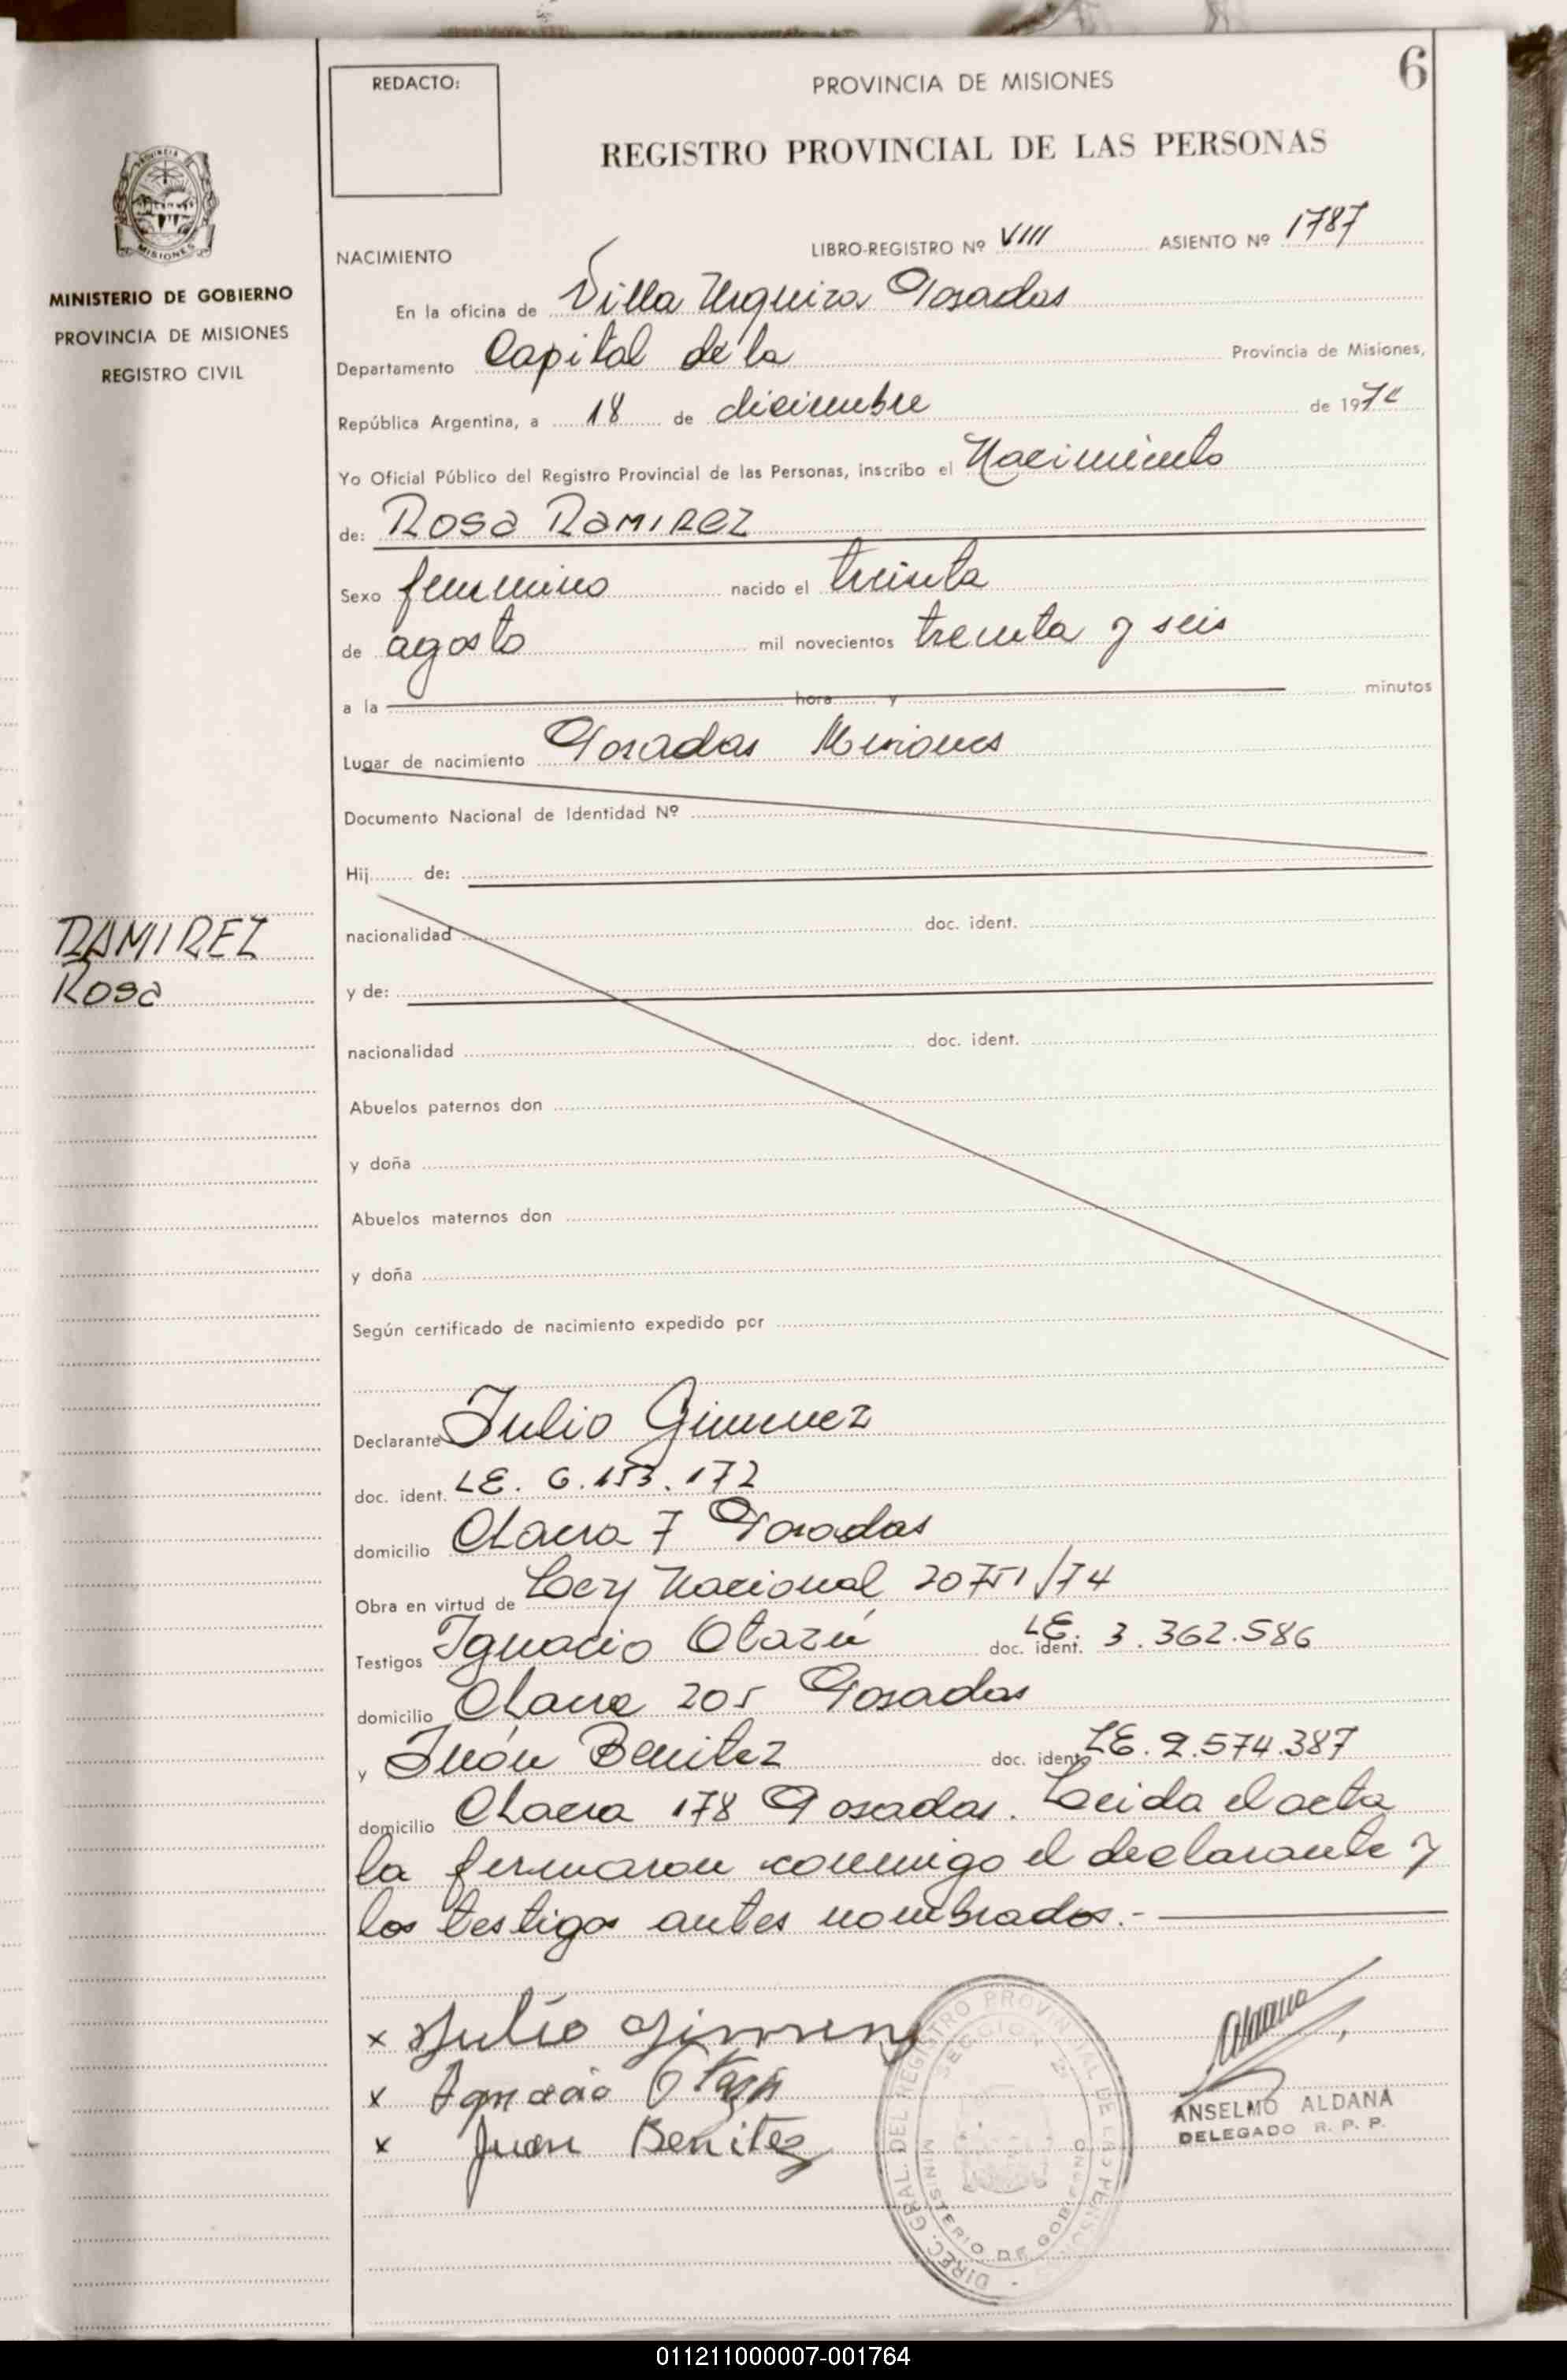 6
REDACTO:
PROVINCIA DE MISIONES
REGISTRO PROVINCIAL DE LAS PERSONAS
MISIONES
MINISTERIO DE GOBIERNO
PROVINCIA DE MISIONES
REGISTRO CIVIL
NACIMIENTO LIBRO-REGISTRO Nº VIII ASIENTO Nº 1787
En la oficina de Villa Urquiza Posadas
Departamento Capital de la Provincia de Misiones,
República Argentina, a 18 de diciembre de 197
Yo Oficial Público del Registro Provincial de las Personas, inscribo el Nacimiento
de: Rosa RAMIREZ
Sexo femenino nacido el treinta
de agosto mil novecientos treinta y seis
a la hora y minutos
Lugar de nacimiento Posadas Misiones
Documento Nacional de Identidad Nº
Hij de:
RAMIREZ
Rosa
nacionalidad doc. ident.
y de:
nacionalidad doc. ident.
Abuelos paternos don
y doña
Abuelos maternos don
y doña
Según certificado de nacimiento expedido por
Declarante Julio Gimenez
doc. ident. LE. 6.153.172
domicilio Chacra 7 Posadas
Obra en virtud de Ley Nacional 20751/74
Testigos Ignacio Otazú doc. ident. LE. 3.362.586
domicilio Chacra 205 Posadas
y Juán Benitez doc. ident. LE. 2.574.387
domicilio Chacra 178 Posadas. Leida el acta
la firmaron conmigo el declarante y
los testigos antes nombrados.-
x Julio Gimenez
x Ignacio Otazú
x Juan Benitez
DIREC. GRAL. DEL REGISTRO PROVINCIAL DE LAS PERSONAS
SECCION
MINISTERIO DE GOBIERNO
ANSELMO ALDANA
DELEGADO R. P. P.
011211000007-001764